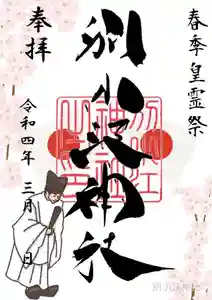 春季皇霊祭
別小江神社
奉拝
令和四年 三月 日
別小江神社